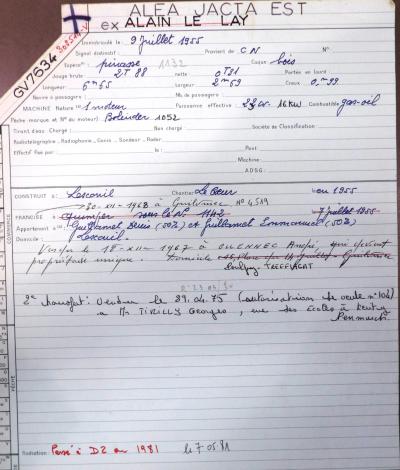 ALEA JACTA EST
ex ALAIN LE LAY
GV7534
Immatriculé le : 9 Juillet 1955
Signal distinctif : Provient de CN N°
Espèce : pinasse 1132 Coque bois
Jauge brute 2T 88 nette 0T91 Portée en lourd :
Longueur 6m55 Largeur 2m59 Creux 0,m99
Navire à passagers : Nb de passagers :
MACHINE Nature 1 moteur Puissance effective : 22 CV. 16KW Combustible gas-oil
(Pêche marque et N° du moteur) Bolinder 1052
Tirant d'eau Chargé : Non chargé : Société de Classification :
Radiotélégraphie, Radiophonie, Consol, Sondeur, Radar :
Effectif fixé par : le : Pont :
Machine :
ADSG :
CONSTRUIT à : Lesconil Chantier Le Cœur en 1955
30-XII-1968 à Guilvinec N° 4519
FRANCISÉ à Quimper sous le N° 1142 7 juillet 1955
Appartenant à M Guillamet Louis (50%) et Guillamet Emmanuel (50%)
Domicile : Lesconil.
Vendu le 18-XII-1967 à QUENNEC André, qui devient
propriétaire unique. Domicile Guilvinec
TREFFIAGAT
2e transfert : Vendu le 29.04.75 (autorisation de vente n° 104)
à Mr TIRILLY Georges, rue des Écoles à Kerity
Penmarc'h.
Radiation : Passé à DZ en 1981 le 7 05 81